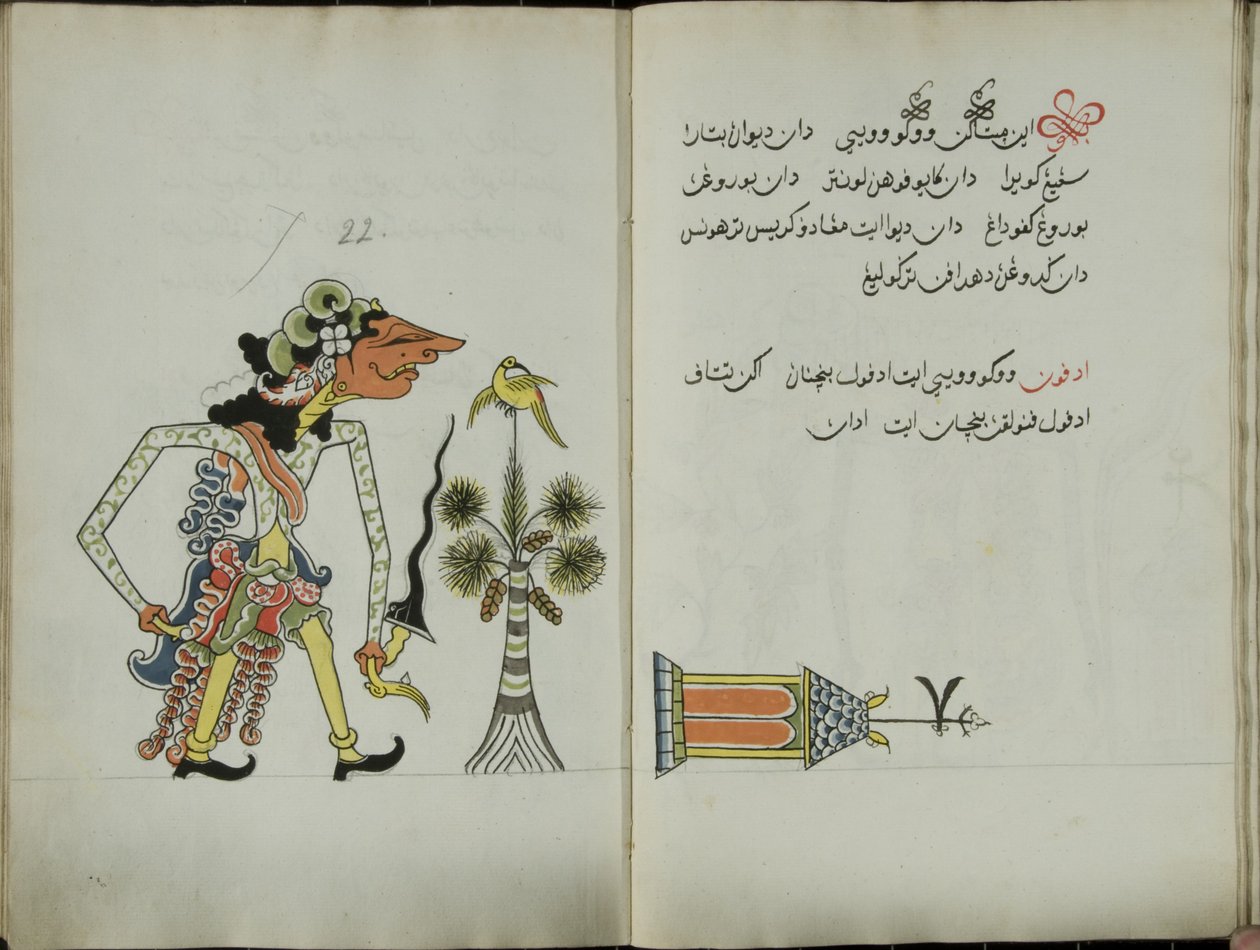 22
اين مڽتاکن ووکو وويي دان ديواڽ بتارا
سڠيڠ کويرا دان کايو فوهن لونتر دان بوروغڽ
بوروغ کفوداغ دان ديوا ايت مڠادف کريس ترهونس
دان کدوغڽ دهدافن ترکوليڠ
ادفون ووکو وويي ايت ادفول بنچناڽ اکن تتاف
ادفول فنولقڽ بنچان ايت اداڽ